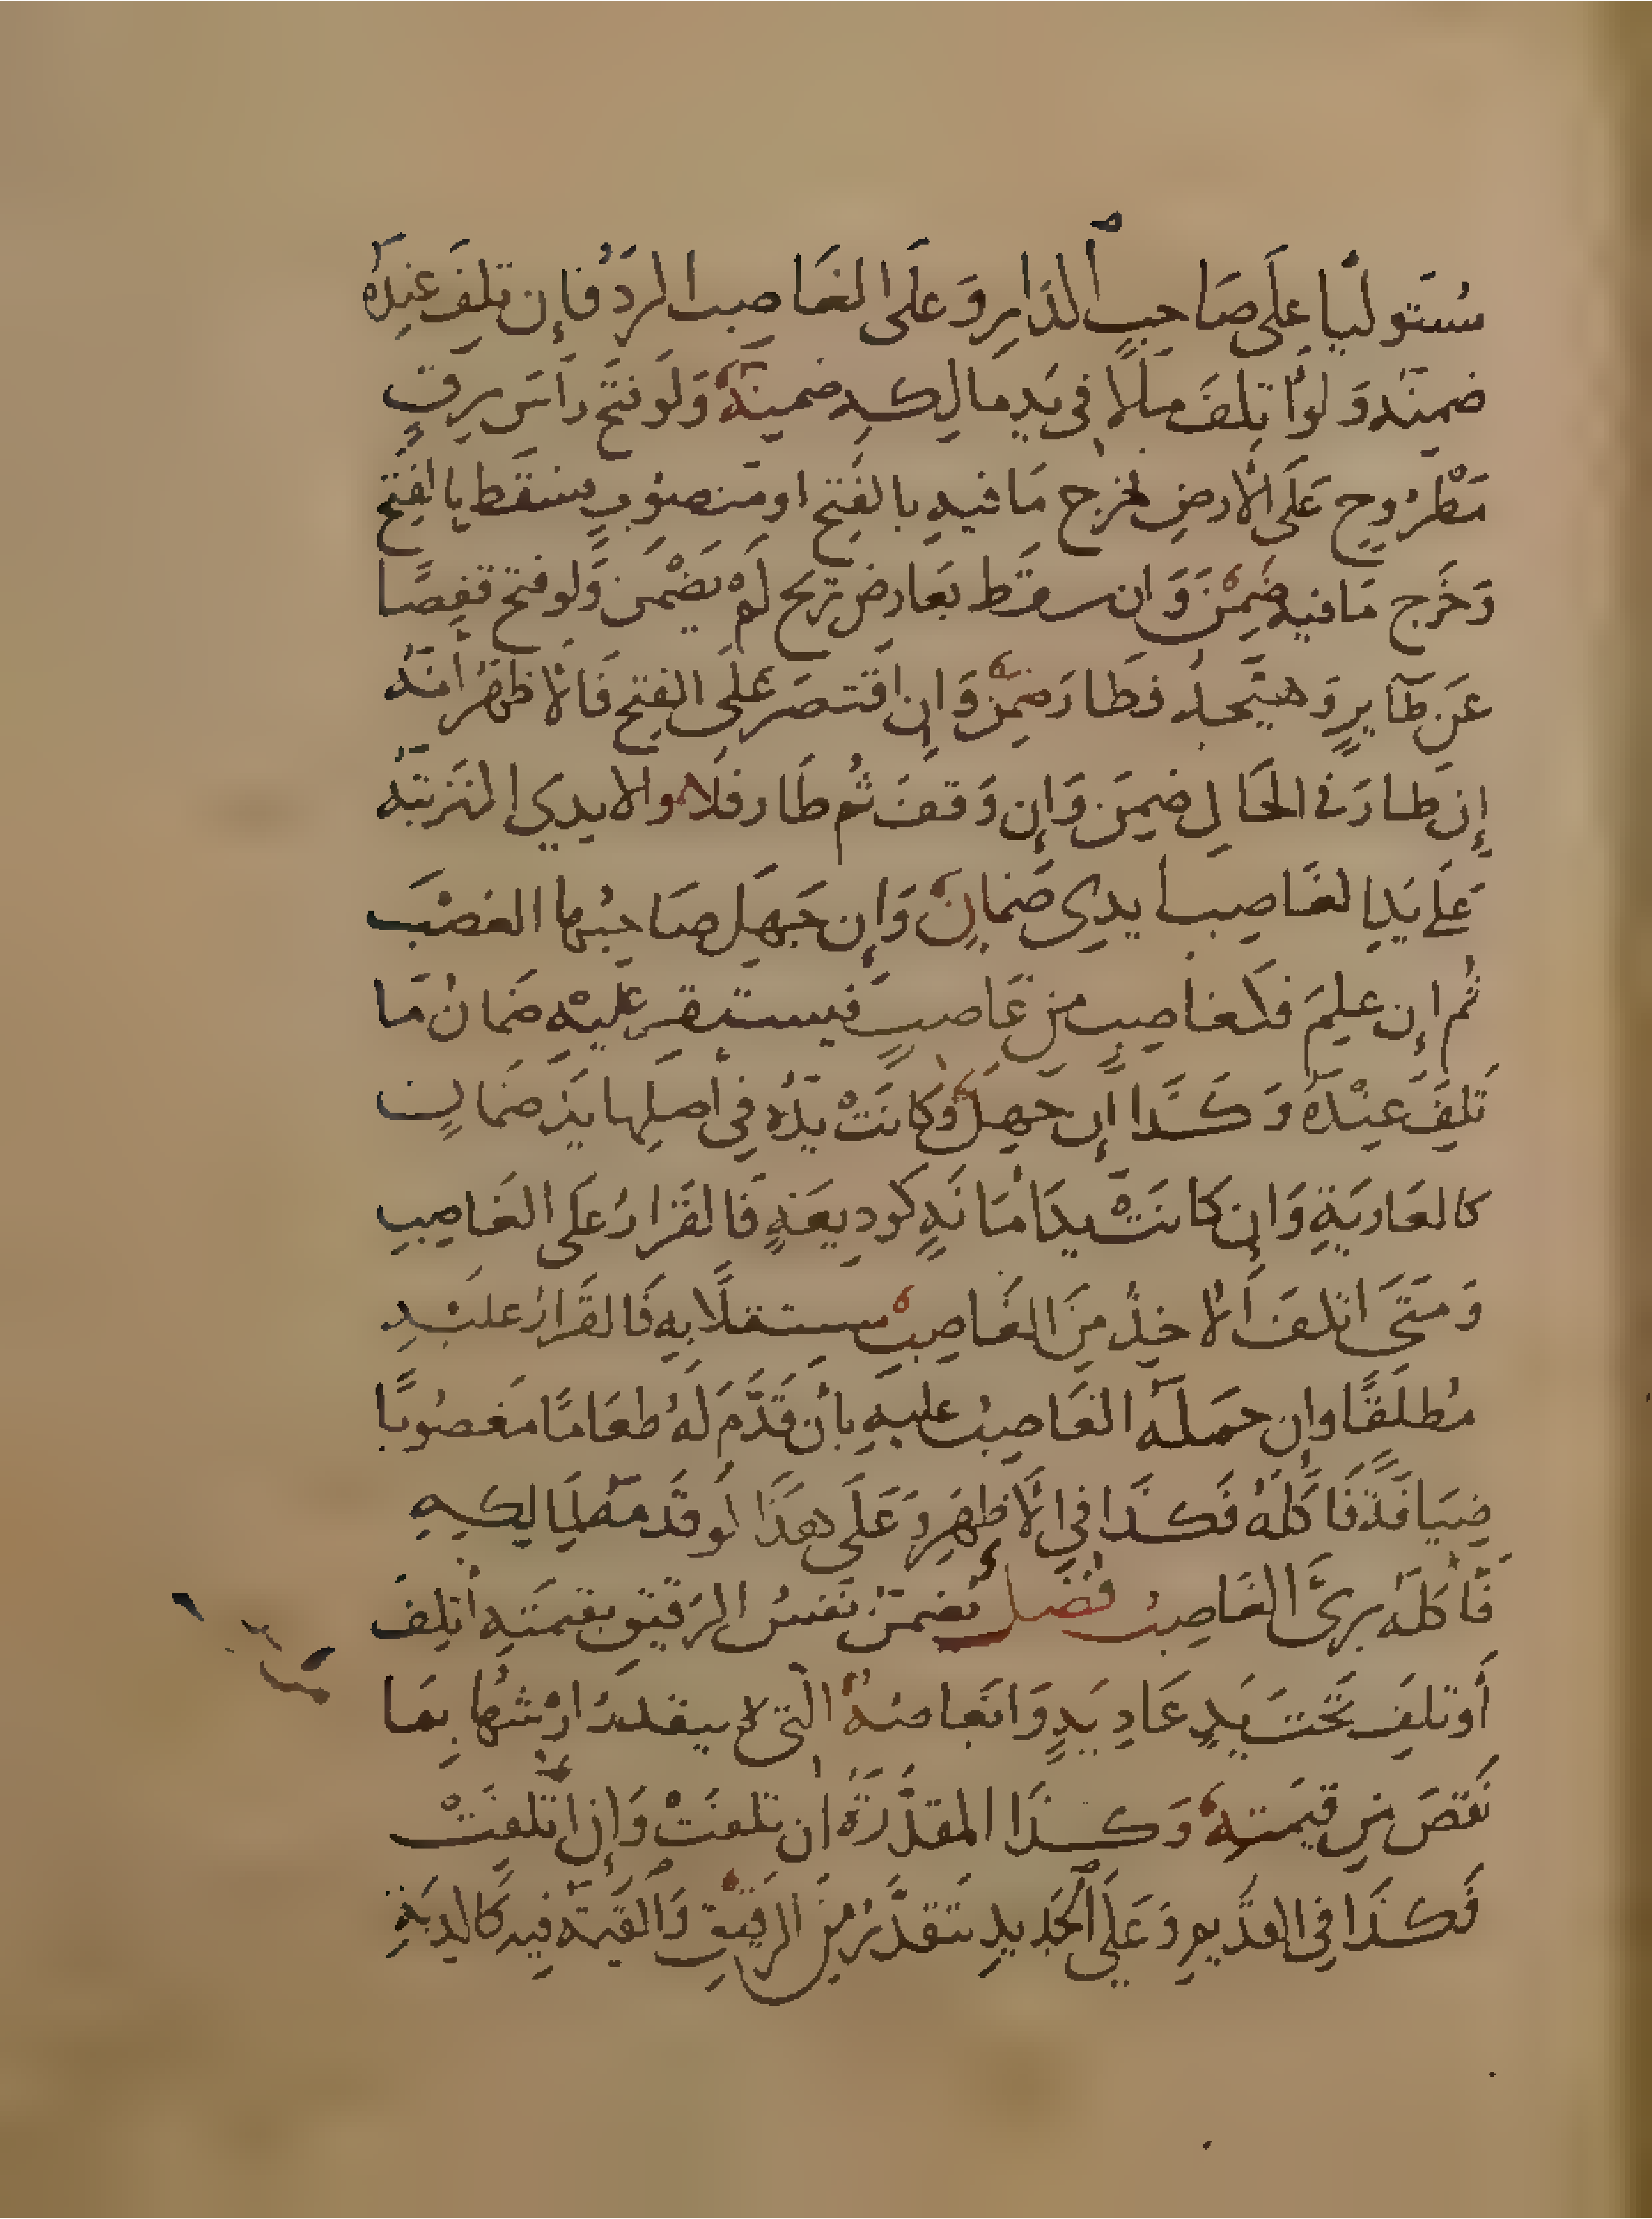 ستوليًا على صَاحبِ الدَارِ وَعَلَى الغَاصِب الردُ فإن تلِفَ عِندَهُ
ضمِنَه وَلو اتلفَ مالا في يَدِ مالِكِهِ ضمِنَهُ وَلَو فتَح رَاسَ زِقٍ
مَطْرُوحٍ عَلَى الارضِ فخرج مَا فيهِ بالفَتحِ او مَنصُوبٍ فسَقَط بالفتحِ
وَخَرج مَا فيه ضَمِنَ وَان سقَط بعَارض ريح لَمْ يَضْمَن وَلو فتح قفصًا
عَن طَايرٍ وَهيَّجهُ فطَارَ ضمِنَ وَإن اقتَصَر عَلى الفتح فَالاظهَرُ أنَّهُ
إن طارَ في الحَالِ ضمِنَ وَإن وَقفَ ثُم طَار فَلا والايدي المترتبَه
عَلى يَدِ الغَاصِب ايدِي ضمَانٍ وَإن جَهِلَ صَاحبُها الغصْبَ
ثُم إن علِمَ فكغاصِبٍ مِن غَاصِبٍ فيستقر عَليْه ضَمانُ مَا
تلِفَ عِنْدَهُ وَكَذا إن جَهِلَ وَكانَتْ يَدُهُ في أصلِها يَدَ ضمَانٍ
كالعَاريَةِ وَإن كَانَتْ يَدَ أمَانَةٍ كَوديعَةٍ فَالقَرارُ عَلَى الغَاصِبِ
وَمَتَى اتلفَ الاخِذُ مِنَ الغَاصِبِ مستقلًا بِهِ فَالقَرارُ عليْهِ
مُطلَقًا وإن حَمَلَهُ الغَاصِبُ عليهِ بأن قَدَّمَ لَهُ طعَامًا مَغصُوبًا
ضِيَافَةً فَأكَلَهُ فَكَذَا في الاظهَرِ وَعَلَى هَذَا لَو قَدَّمَهُ لمَالِكِهِ
فَأكلَهُ برئَ الغَاصِبُ فصْل تُضمَنُ نفسُ الرَقيقِ بقيمَتِهِ أتلِفَ
أوتلِفَ تَحتَ يَدٍ عَادِيَةٍ وَابعَاضُهُ التي لا يتقدرُ ارْشُها بِمَا
نَقصَ مِن قيمَتِهِ وَكَذَا المقدَّرَةُ ان تلفَتْ وَإن اتلِفَتْ
فَكَذَا في القديمِ وَعَلَى الجَدِيدِ تتقدَّرُ مِنَ الرقيقِ وَالقيمَة فيه كَالديَةِ